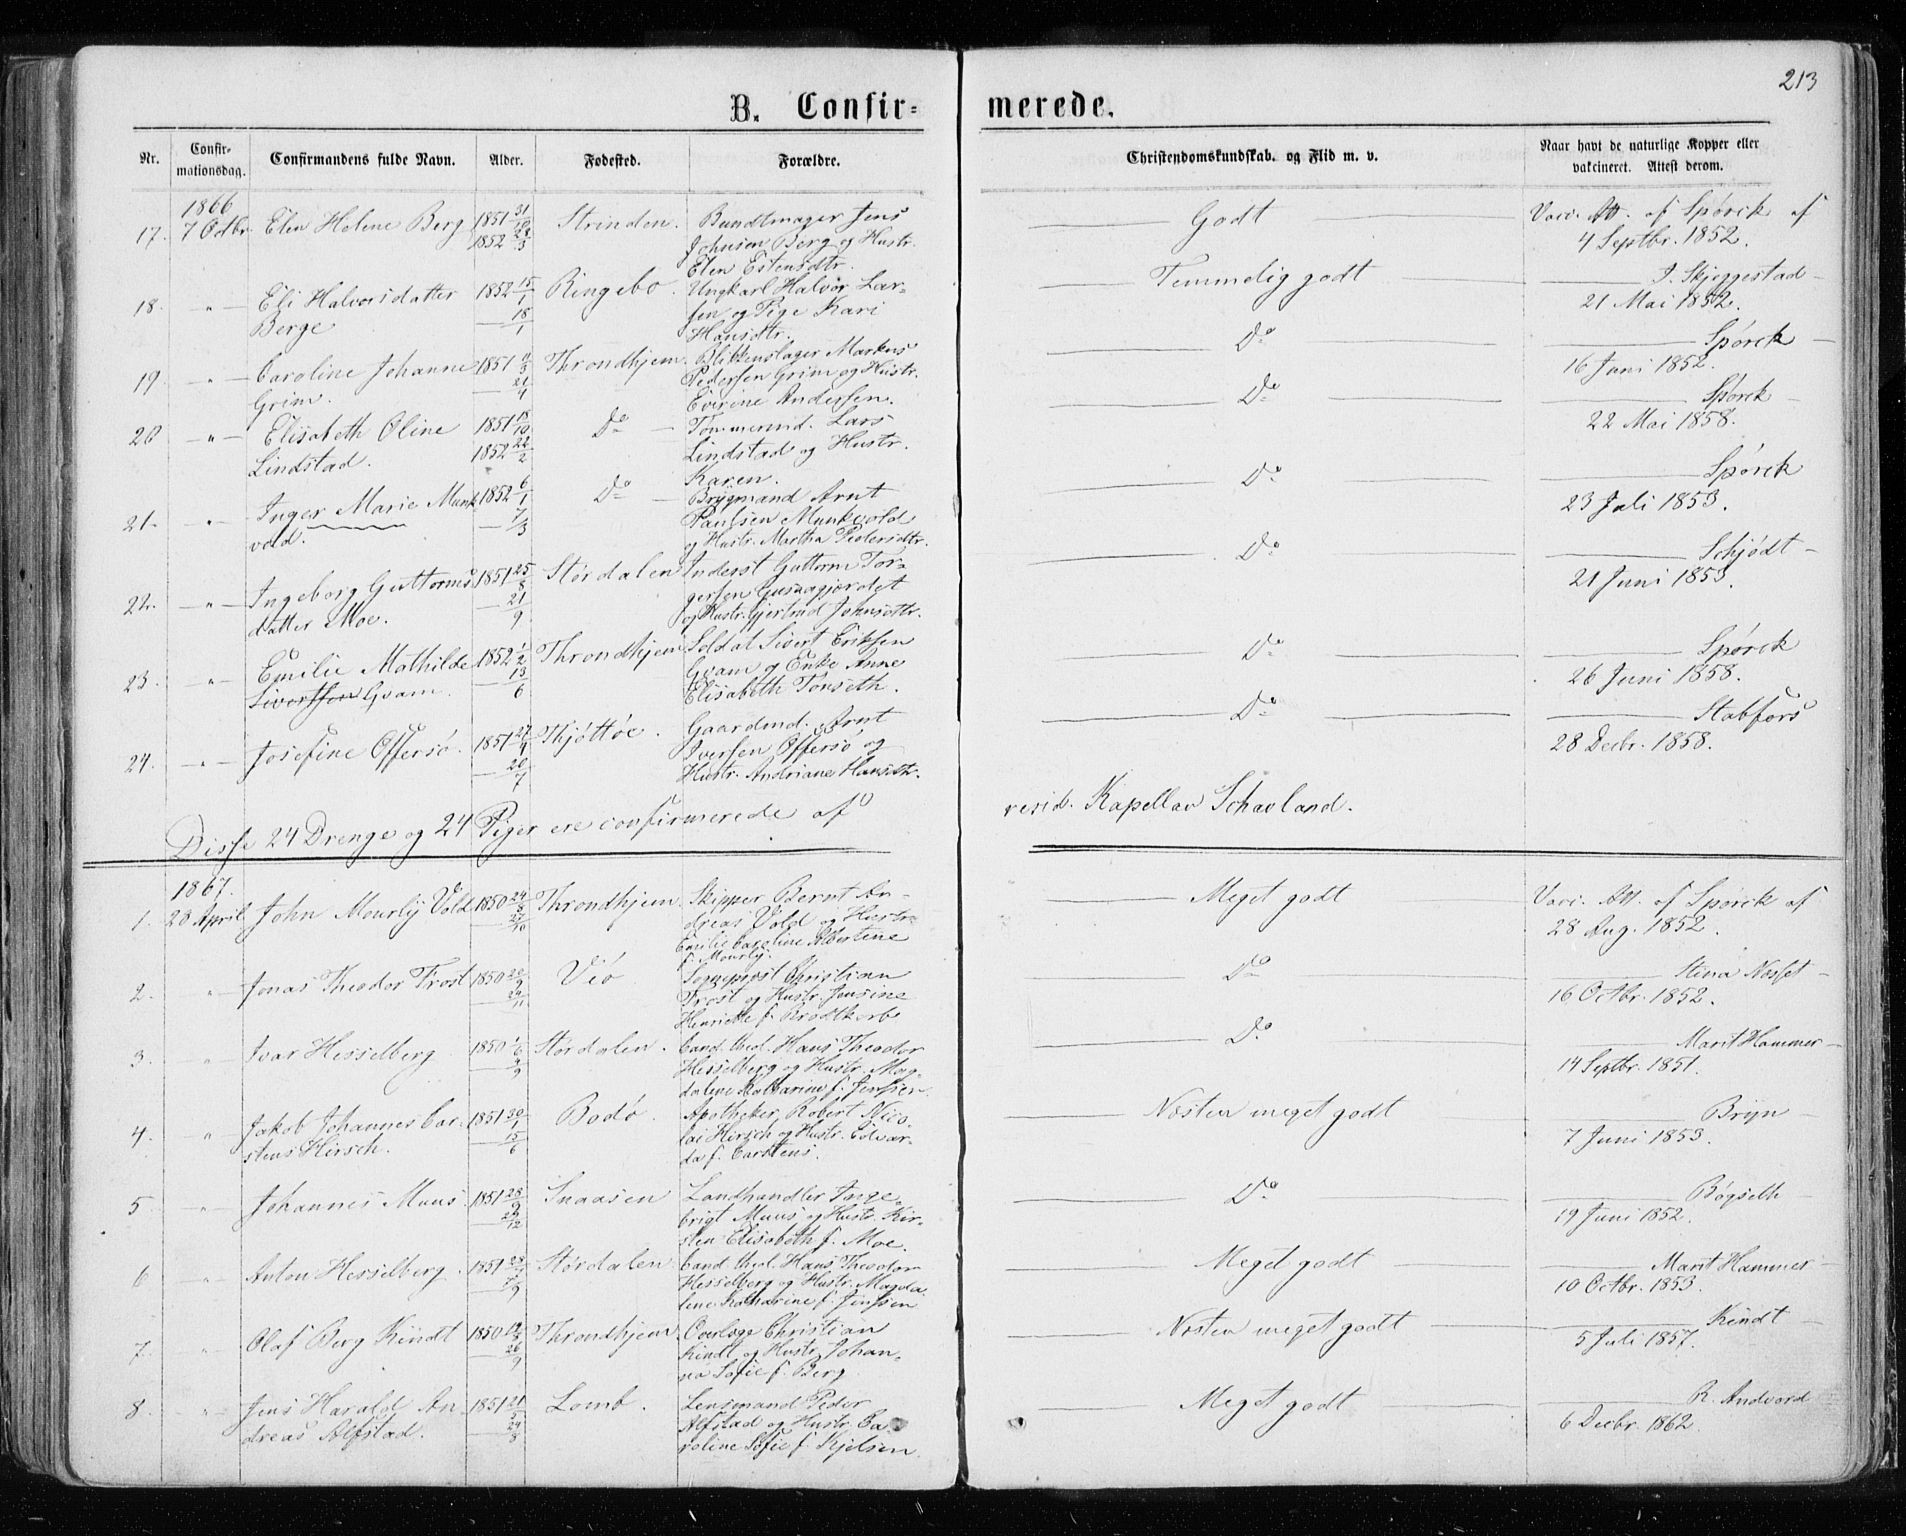 213
B. Confir-
merede.
Nr. Confirmationsdag. Confirmandens fulde Navn. Alder. Fødested. Forældre. Christendomskundskab, og Flid m. v. Naar havt de naturlige Kopper eller vakcineret. Attest derom.
1866
17. 7 Octbr. Elen Helene Berg 1851 31/12 Strinden. Bundtmager Jens Godt Vacc. Att. af Spørck af
1852 28/3 Johnsen Berg og Hustr. 4 Septbr. 1852.
Elen Estensdtr.
18. -"- Eli Halvorsdatter 1852 15/1 Ringebo. Ungkarl Halvor Lar- Temmelig godt J. Skjeggestad
Berge 18/1 sen og Pige Kari 21 Mai 1852.
Hansdtr.
19. -"- Caroline Johanne 1851 4/3 Throndhjem. Blikkenslager Markus Do Spørck
Grim. 21/4 Pedersen Grim og Hustr. 16 Juni 1852.
Evirine Andersen.
20 -"- Elisabeth Oline 1851 18/10 Do Tømmermd. Lars Do Spørck
Lindstad. 1852 22/2 Lindstad og Hustr. 22 Mai 1858.
Karen.
21. " Inger Marie Munk 1852 6/1 Do Brygmand Arnt Do Spørck
vold. 7/3 Paulsen Munkvold 23 Juli 1853.
og Hustr. Martha Pedersdtr.
22. -"- Ingeborg Guttorms 1851 25/8 Størdalen Inderst Guttorm Tor- Do Schjødt
datter Moe. 21/9 gersen 21 Juni 1853.
og Hustr. Gjertrud Johnsdtr.
23. " Emilie Mathilde 1852 1/2 Throndhjem Soldat Sivert Eriksen Do Spørck
Sivertsen Gvam. 13/6 Gvam og Enke Anne 26 Juni 1858.
Elisabeth Tonseth.
24. -"- Josefine Offersø. 1851 27/4 Thjøttøe. Gaardmd. Arnt Do Stabfors
20/7 Iversen Offersø og 28 Decbr. 1858.
Hustr. Andriane Hansdtr.
Disse 24 Drenge og 24 Piger ere confirmerede af resid. Kapellan Schavland.
1867.
1. 20 April John Mourly Vold 1850 24/8 Throndhjem. Skipper Bernt An- Meget godt Vacc. Att. af Spørck af
27/10 dreas Vold og Hustr. 28 Aug. 1852.
Emilie Caroline Albertine
f. Mourly.
2. " Jonas Theodor Frost 1850 Viø Sogneprest Christian Do Stina Næsset
Frost og Hustr. Jensine 16 Octbr. 1852.
Henriette f. Brodtkorb
3. " Ivar Hesselberg 1850 1/6 Størdalen. Cand. thel. Hans Theodor Do Marit Hammer
9/9 Hesselberg og Hustr. Mag- 14 Septbr. 1851.
dalene Katharine f. Jenssen.
4. " Jakob Johannes Car- 1851 30/1 Bodø. Apotheker Robert Nico- Næsten meget godt Bryn
stens Hirsch. 15/6 lai Hirsch og Hustr. Edvar- 7 Juni 1853.
da f. Carstens.
5 " Johannes Muus 1851 28/9 Snaasen Landhandler Inge- Do Bøgseth
/12 brigt Muus og Hustr. Kir- 19 Juni 1852.
sten Elisabeth f. Moe.
6 " Anton Hesselberg. 1851 Størdalen Cand. theol. Hans Theodor Meget godt Marit Hammer
7/9 Hesselberg og Hustr. Magda 10 Octbr. 1853.
lene Katharine f. Jenssen
7. " Olaf Berg Kindt 1850 Throndhjem. Overlæge Christian Næsten meget godt Kindt
26/9 Kindt og Hustr. Johan- 5 Juli 1857.
na Sofie f. Berg
8. " Jens Harald An- 1851 21/5 Lomb. Lensmand Peder Meget godt R. Andvord
dreas Alfstad. 24/8 Alfstad og Hustr. Ca- 6 Decbr. 1862.
roline Sofie f. Kjelsen.